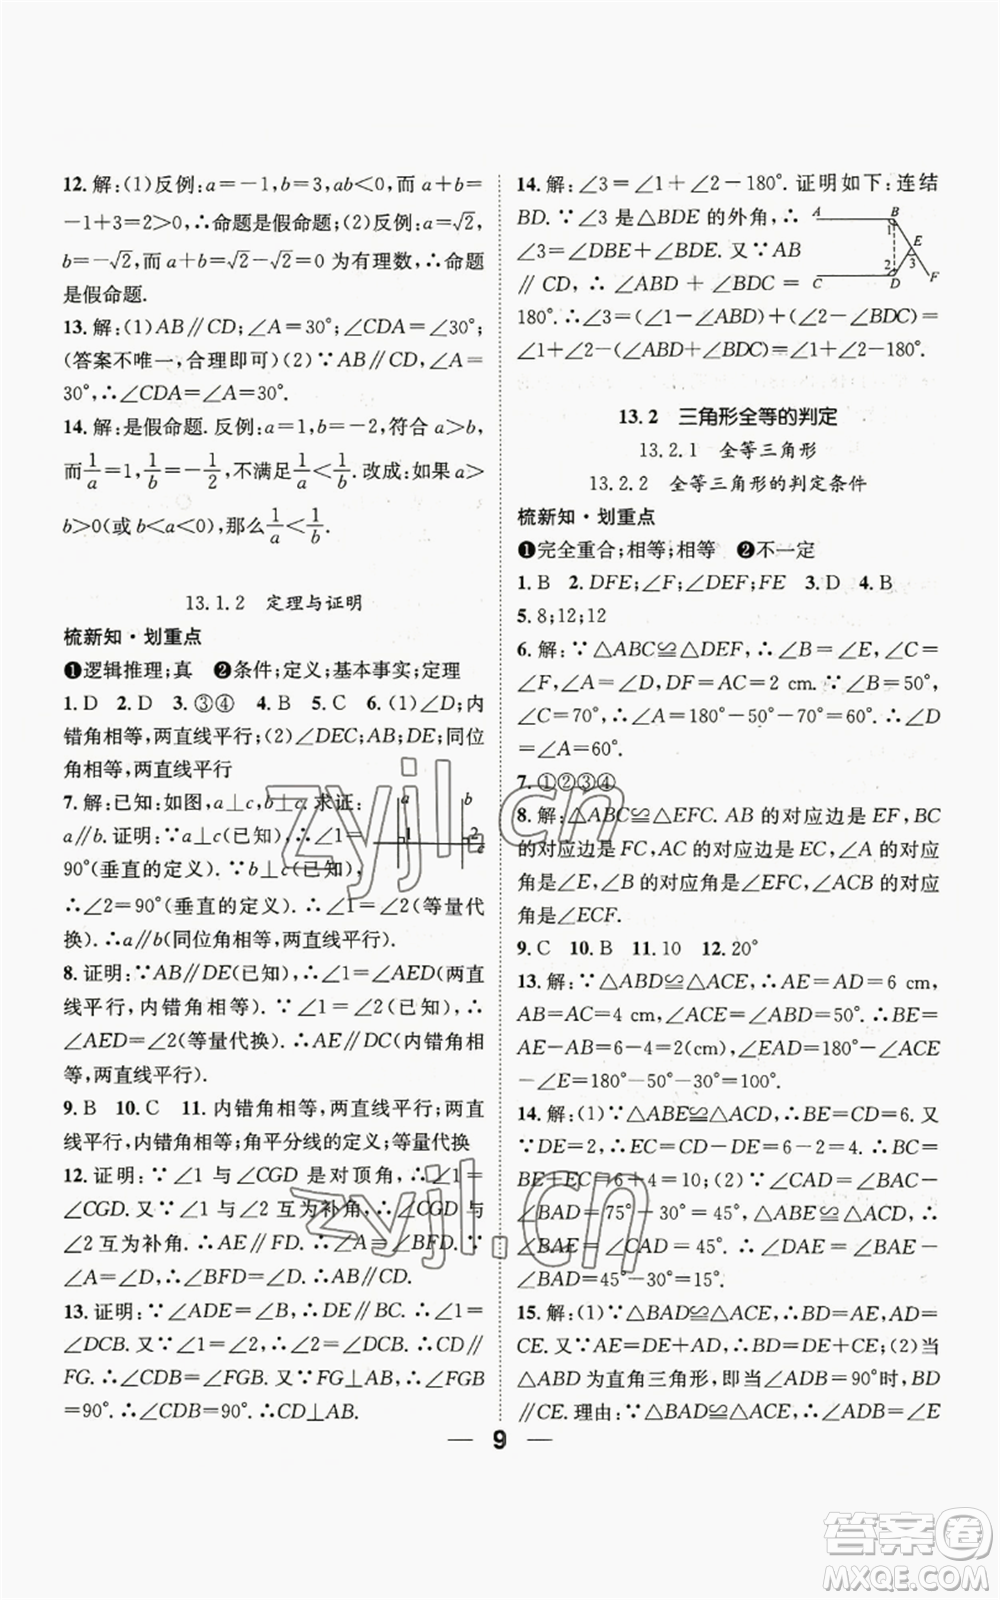 12. 解:(1)反例:a=-1,b=3,ab<0,而 a+b=
-1+3=2>0,∴命题是假命题;(2)反例:a=√2,
b=-√2,而 a+b=√2-√2=0 为有理数,∴命题
是假命题.
13. 解:(1)AB∥CD;∠A=30°;∠CDA=∠30°;
(答案不唯一,合理即可)(2)∵AB∥CD,∠A=
30°,∴∠CDA=∠A=30°.
14. 解:是假命题. 反例:a=1,b=-2,符合 a>b,
而 1/a=1,1/b=-1/2,不满足 1/a<1/b. 改成:如果 a>
b>0(或 b<a<0),那么 1/a<1/b.
13.1.2 定理与证明
梳新知·划重点
❶逻辑推理;真 ❷条件;定义;基本事实;定理
1. D 2. D 3. ③④ 4. B 5. C 6. (1)∠D;内
错角相等,两直线平行;(2)∠DEC;AB;DE;同位
角相等,两直线平行
7. 解:已知:如图,a⊥c,b⊥c. 求证:
a∥b. 证明:∵a⊥c(已知),∴∠1=
90°(垂直的定义). ∵b⊥c(已知),
∴∠2=90°(垂直的定义). ∴∠1=∠2(等量代
换). ∴a∥b(同位角相等,两直线平行).
a b
1 2
c
8. 证明:∵AB∥DE(已知),∴∠1=∠AED(两直
线平行,内错角相等). ∵∠1=∠2(已知),∴
∠AED=∠2(等量代换). ∴AE∥DC(内错角相
等,两直线平行).
9. B 10. C 11. 内错角相等,两直线平行;两直线
平行,内错角相等;角平分线的定义;等量代换
12. 证明:∵∠1 与∠CGD 是对顶角,∴∠1=
∠CGD. 又∵∠1 与∠2 互为补角,∴∠CGD 与
∠2 互为补角. ∴AE∥FD. ∴∠A=∠BFD. ∵
∠A=∠D,∴∠BFD=∠D. ∴AB∥CD.
13. 证明:∵∠ADE=∠B,∴DE∥BC. ∴∠1=
∠DCB. 又∵∠1=∠2,∴∠2=∠DCB. ∴CD∥
FG. ∴∠CDB=∠FGB. 又∵FG⊥AB,∴∠FGB
=90°. ∴∠CDB=90°. ∴CD⊥AB.
14. 解:∠3=∠1+∠2-180°. 证明如下:连结
BD. ∵∠3 是△BDE 的外角,∴
∠3=∠DBE+∠BDE. 又∵AB
∥CD,∴∠ABD+∠BDC=
180°. ∴∠3=(∠1-∠ABD)+(∠2-∠BDC)=
∠1+∠2-(∠ABD+∠BDC)=∠1+∠2-180°.
A B
1
E
2 3
C D F
13.2 三角形全等的判定
13.2.1 全等三角形
13.2.2 全等三角形的判定条件
梳新知·划重点
❶完全重合;相等;相等 ❷不一定
1. B 2. DFE;∠F;∠DEF;FE 3. D 4. B
5. 8;12;12
6. 解:∵△ABC≌△DEF,∴∠B=∠E,∠C=
∠F,∠A=∠D,DF=AC=2 cm. ∵∠B=50°,
∠C=70°,∴∠A=180°-50°-70°=60°. ∴∠D
=∠A=60°.
7. ①②③④
8. 解:△ABC≌△EFC. AB 的对应边是 EF,BC
的对应边是 FC,AC 的对应边是 EC,∠A 的对应
角是∠E,∠B 的对应角是∠EFC,∠ACB 的对应
角是∠ECF.
9. C 10. B 11. 10 12. 20°
13. 解:∵△ABD≌△ACE,∴AE=AD=6 cm,
AB=AC=4 cm,∠ACE=∠ABD=50°. ∴BE=
AE-AB=6-4=2(cm),∠EAD=180°-∠ACE
-∠E=180°-50°-30°=100°.
14. 解:(1)∵△ABE≌△ACD,∴BE=CD=6. 又
∵DE=2,∴EC=CD-DE=6-2=4. ∴BC=
BE+EC=6+4=10;(2)∵∠CAD=∠BAC-
∠BAD=75°-30°=45°,△ABE≌△ACD,∴
∠BAE=∠CAD=45°. ∴∠DAE=∠BAE-
∠BAD=45°-30°=15°.
15. 解:(1)∵△BAD≌△ACE,∴BD=AE,AD=
CE. 又∵AE=DE+AD,∴BD=DE+CE;(2)当
△ABD 为直角三角形,即当∠ADB=90°时,BD
∥CE. 理由:∵△BAD≌△ACE,∴∠ADB=∠E
— 9 —
zyjl.cn
zyjl.cn
答案圈
MXQE.COM